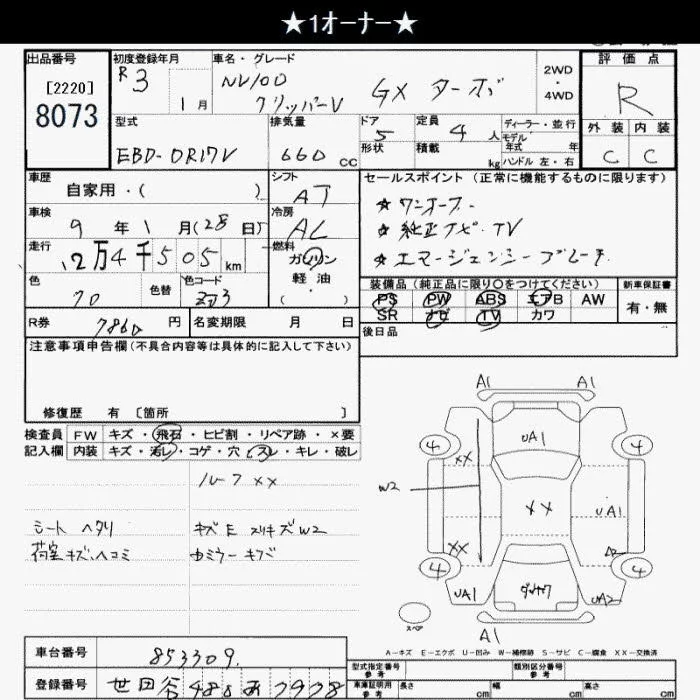 ★1オーナー★
出品番号
[2220]
8073
初度登録年月
R3
1月
車名・グレード
NV100
クリッパーV
GX ターボ
2WD
・
4WD
評価点
R
外装 内装
C C
型式
EBD-DR17V
排気量
660 cc
ドア
5
形状
定員
4人
積載
kg
ディーラー・並行
モデル
年式 年
ハンドル 左・右
車歴
自家用・( )
シフト
AT
車検
9年1月(28日)
冷房
AC
走行
2万4千505km
燃料
ガソリン
軽油
( ・ )
色
色替
色コード
Z73
R券
7860円
名変期限 月 日
セールスポイント(正常に機能するものに限ります)
★ワンオーナー
★純正ナビ・TV
★エマージェンシーブレーキ
装備品(純正品に限り〇をつけてください)
PS PW ABS エアB AW
SR ナビ TV カワ
新車保証書
有・無
後日品
注意事項申告欄(不具合内容等は具体的に記入して下さい)
修復歴 有〔箇所 〕
検査員
記入欄
FW キズ・飛石・ヒビ割・リペア跡・×要
内装 キズ・汚レ・コゲ・穴・スレ・キレ・破レ
ルーフ××
シート ヘタリ
荷室キズ、ヘコミ
キズE スリキズW2
A1 A1
UA1
4 4
XX
W2
XX
UA1
XX
A2
4 4
UA1
UA2
スペア
A1
A-キズ E-エクボ U-凹み W-補修跡 S-サビ C-腐食 XX-交換済
車台番号
853309
登録番号
世田谷480あ7978
型式指定番号
参考
類別区分番号
参考
車庫証明用
参考
長さ cm
幅 cm
高さ cm